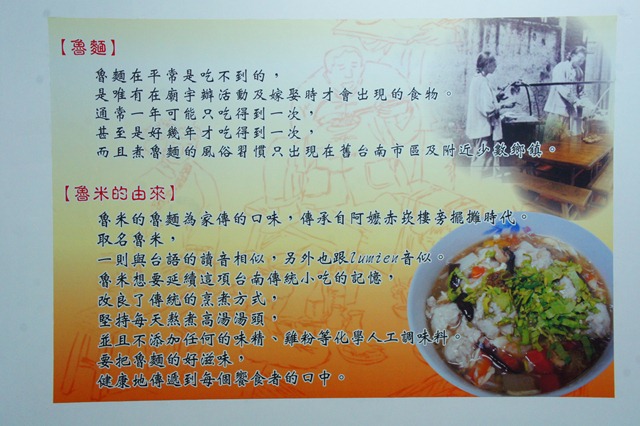 【魯麵】
魯麵在平常是吃不到的，
是唯有在廟宇辦活動及嫁娶時才會出現的食物。
通常一年可能只吃得到一次，
甚至是好幾年才吃得到一次，
而且煮魯麵的風俗習慣只出現在舊台南市區及附近少數鄉鎮。
【魯米的由來】
魯米的魯麵為家傳的口味，傳承自阿嬤赤崁樓旁擺攤時代。
取名魯米，
一則與台語的讀音相似，另外也跟lumien音似。
魯米想要延續這項台南傳統小吃的記憶，
改良了傳統的烹煮方式，
堅持每天熬煮高湯湯頭，
並且不添加任何的味精、雞粉等化學人工調味料。
要把魯麵的好滋味，
健康地傳遞到每個饕食者的口中。